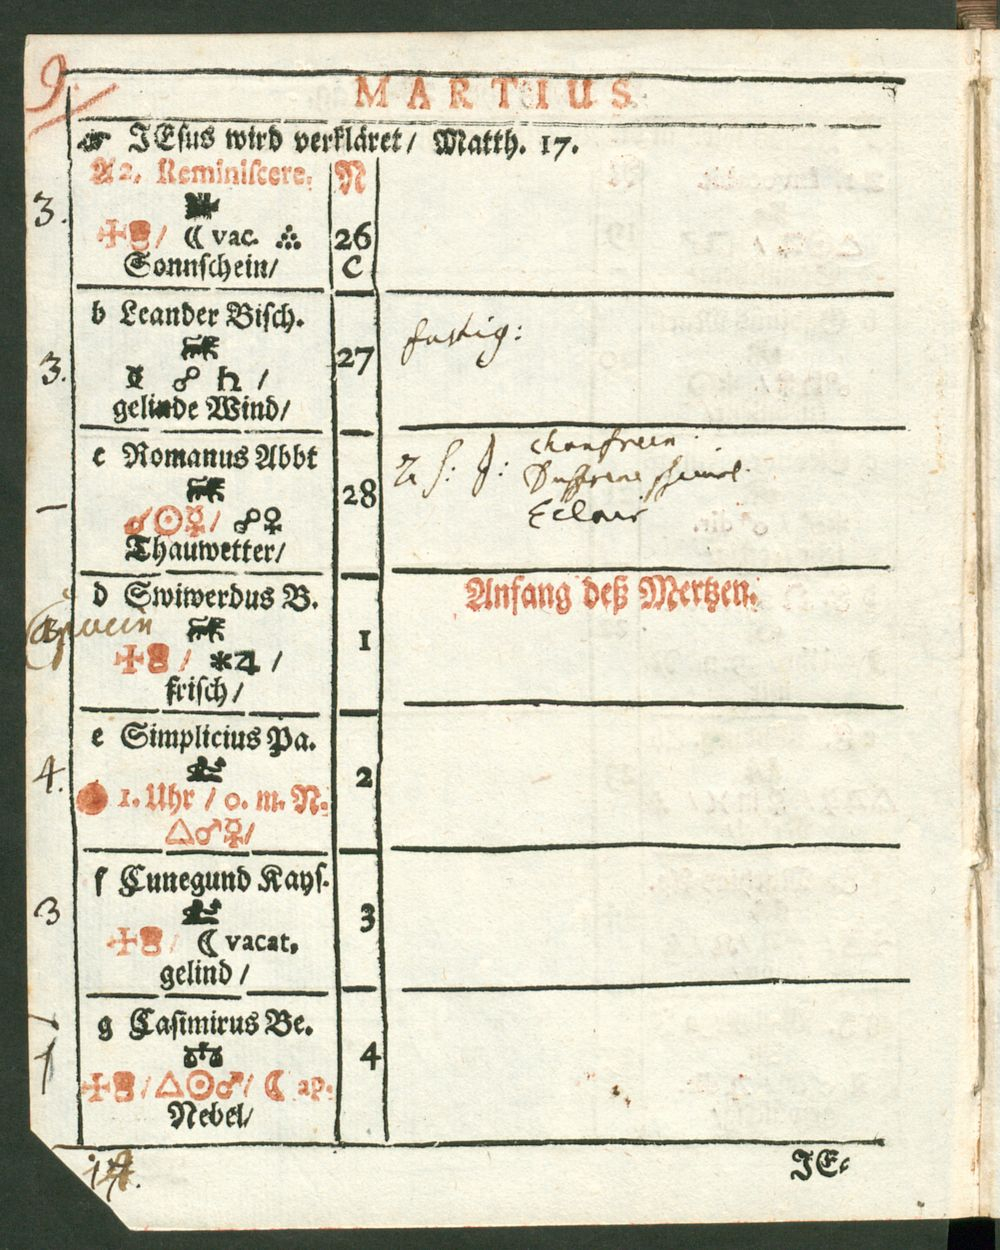 9.
MARTIUS
☞ JEsus wird verkläret/ Matth. 17.
A 2. Reminiscere. N
3.
☾ vac. 26
Sonnschein/ C
b Leander Bisch.
3. 27
☿ ☍ ♄ /
gelinde Wind/
e Romanus Abbt
28
♂☉☿/ ☍♀
Eclair
Thauwetter/
d Swiwerdus B. Anfang deß Mertzen.
1
/ ✱♃ /
frisch/
e Simplicius Pa.
4. 2
1. Uhr / 0. m. N.
△♂☿/
f Cunegund Kays.
3 3
/ ☾ vacat.
gelind /
g Casimirus Be.
4
/△☉♂/ ☾ ap.
Nebel/
JE-